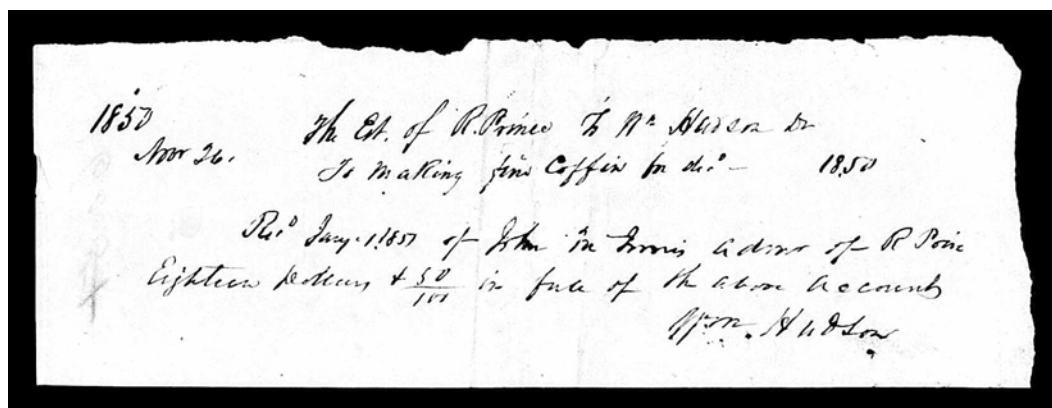 1850
The Est. of R. Prince To Wm Hudson Dr
Novr 26.
To making fine Coffin for decd — 18.50
Recd Jany. 1, 1851 of John admr of R Princ
Eighteen Dollars & 50/100 in full of the above account
Wm. Hudson